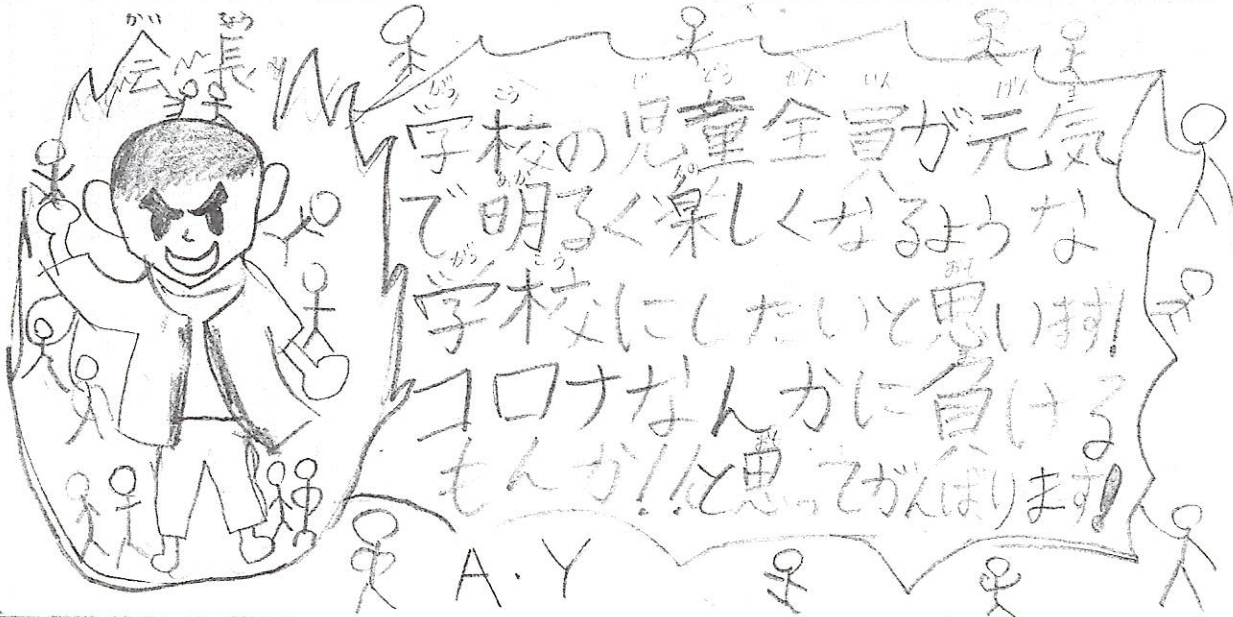 会長
学校の児童全員が元気
で明るく楽しくなるような
学校にしたいと思います!
コロナなんかに負ける
もんか!!と思ってがんばります!
A.Y